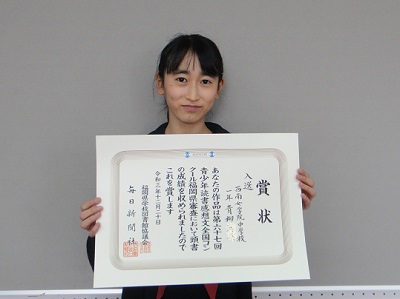 賞状
入選
西南女学院中学校
一年 青柳
あなたの作品は第六十七回
青少年読書感想文全国コン
クール福岡県審査において頭書
の成績を収められましたので
これを賞します
令和三年十二月二十日
福岡県学校図書館協議会
毎日新聞社